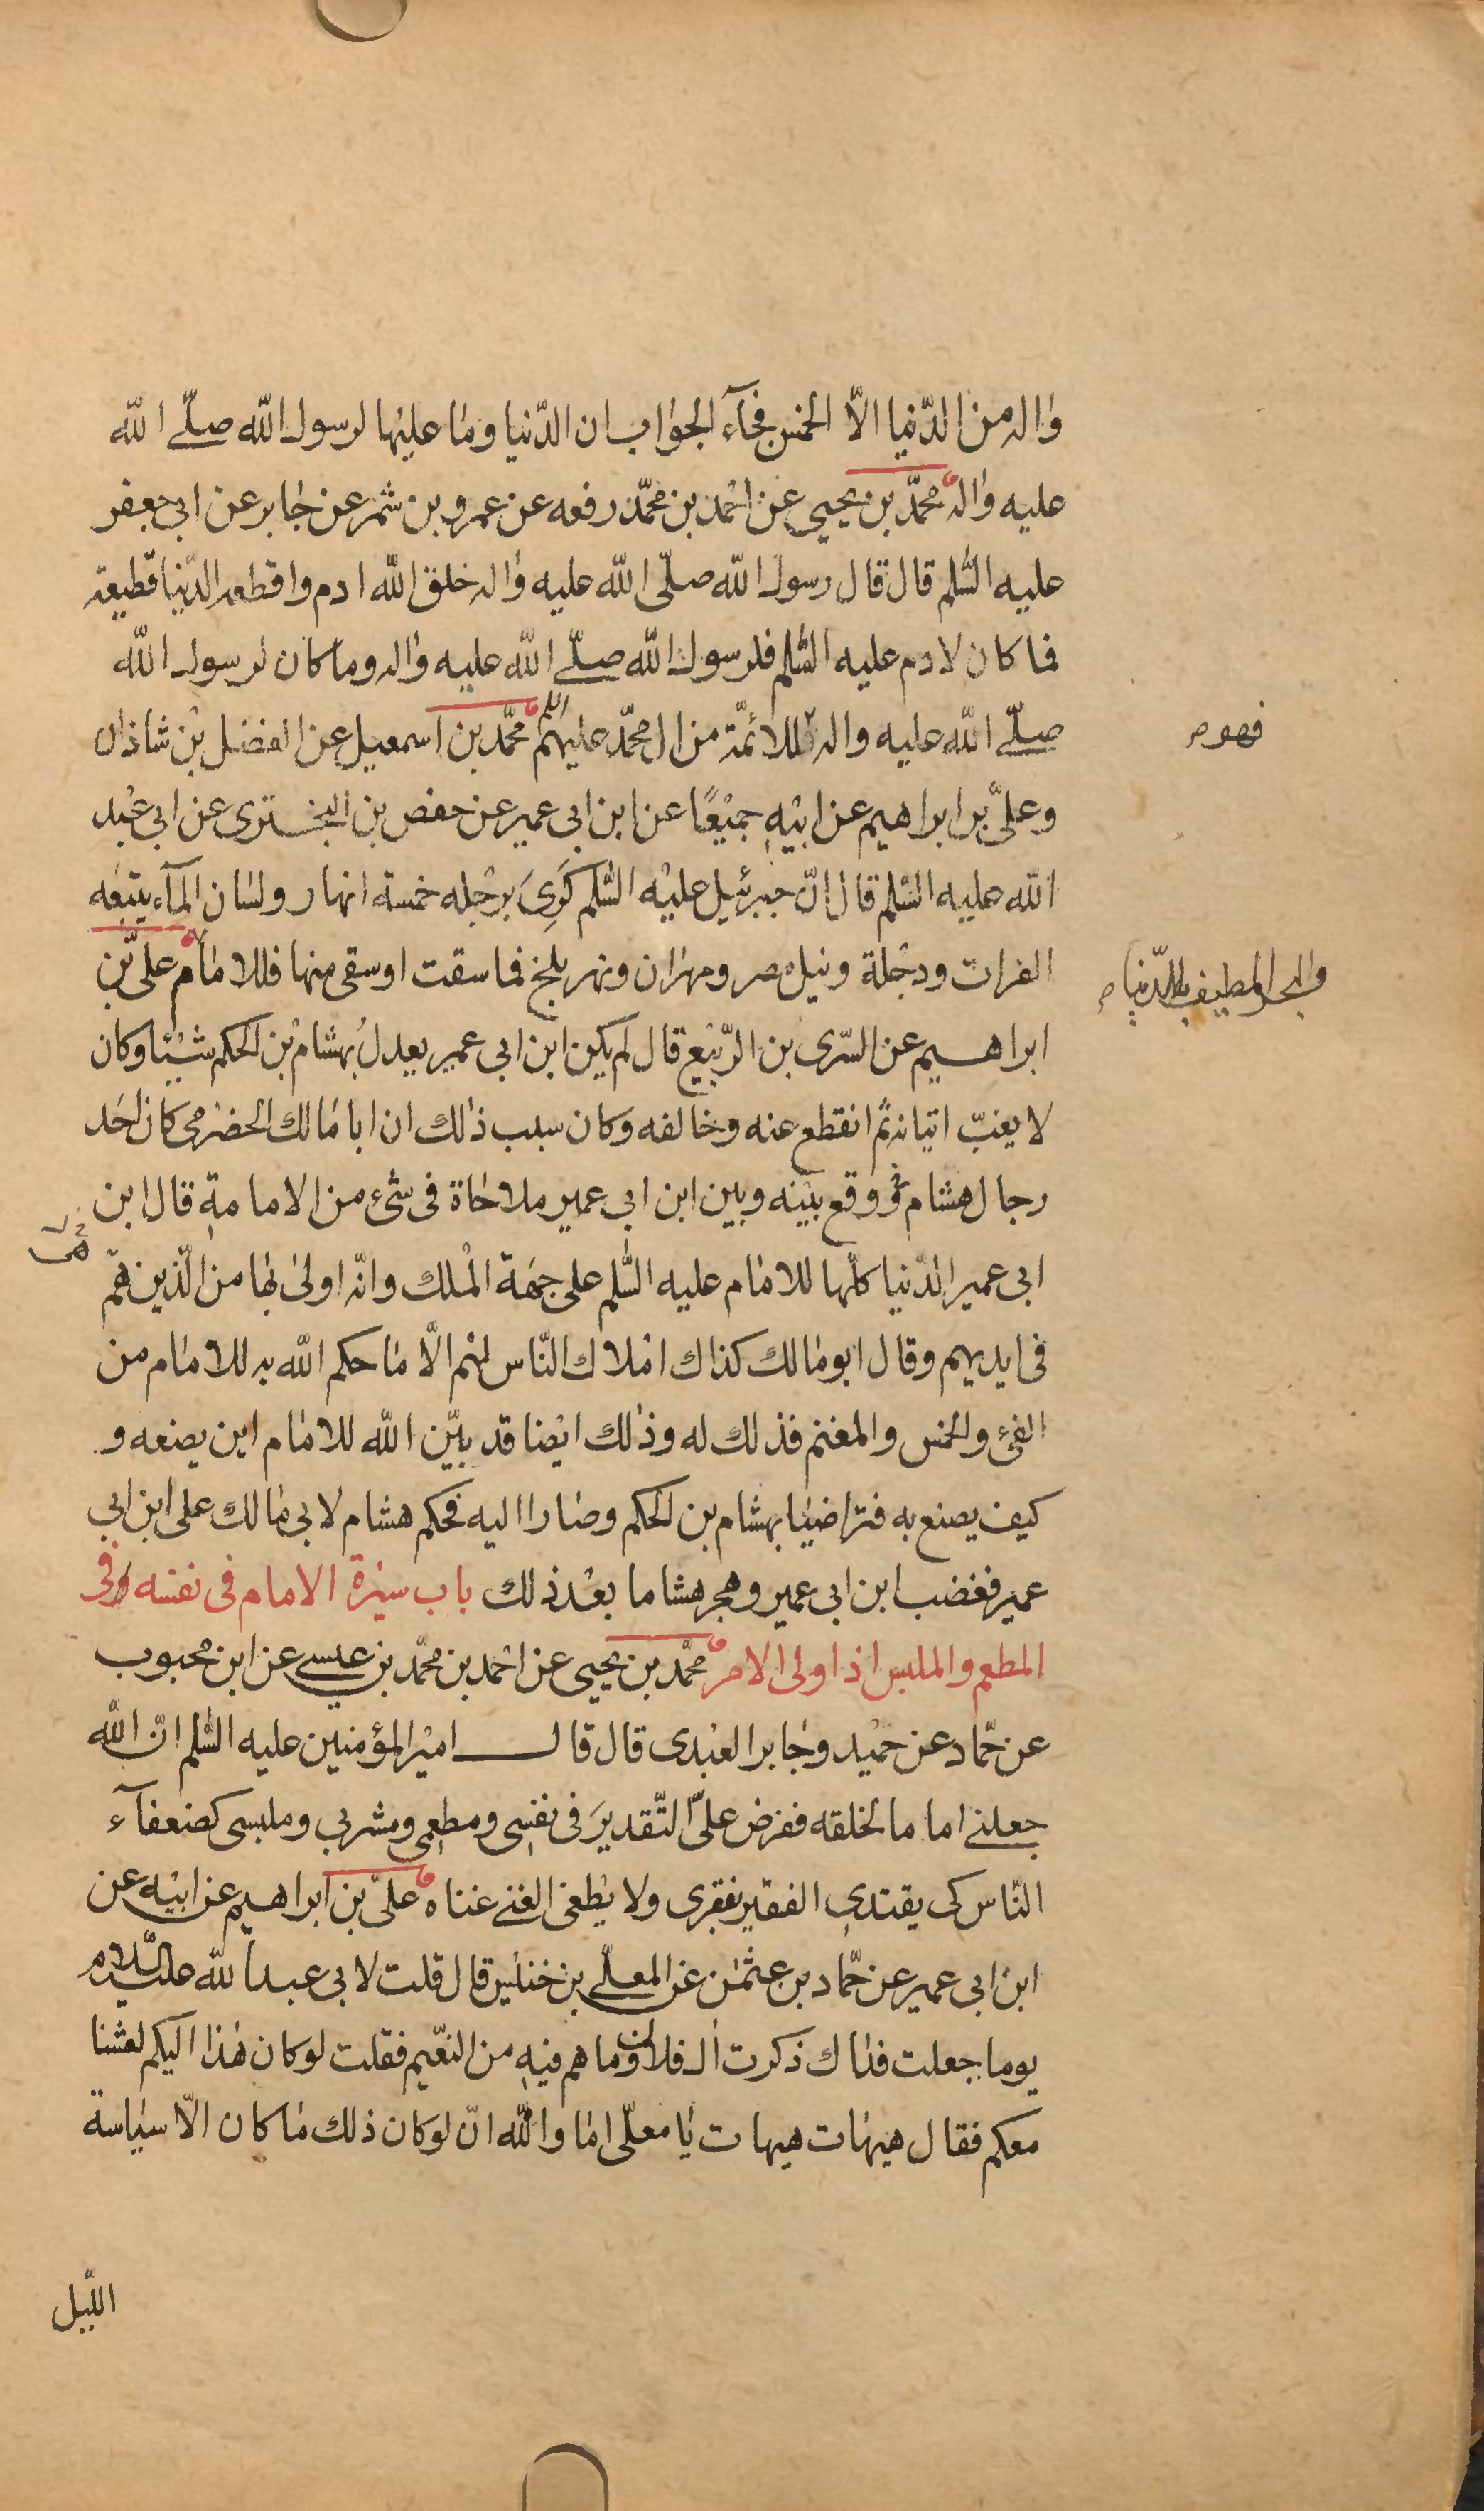 واله من الدّنيا الّا الخمس فجآء الجواب ان الدّنيا وما عليها لرسول الله صلّى الله
عليه واله محمّد بن يحيى عن احمد بن محمّد رفعه عن عمرو بن شمر عن جابر عن ابي جعفر
عليه السّلم قال قال رسول الله صلّى الله عليه واله خلق الله ادم واقطعه الدّنيا قطيعة
فما كان لادم عليه السّلم فلرسول الله صلّى الله عليه واله وما كان لرسول الله
صلّى الله عليه واله للائمّة من ال محمّد عليهم السلم محمّد بن اسمعيل عن الفضل بن شاذان
فهو ص
وعلىّ بن ابراهيم عن ابيه جميعًا عن ابن ابى عمير عن حفص بن البخترى عن ابى عبد
الله عليه السّلم قال انّ جبرئيل عليه السّلم كَرِىَ برجله خمسة انهار ولسان المآء يتبعه
الفرات ودجلة ونيل مصر ومهران ونهر بلخ فما سقت او سقى منها فللامام علىّ بن
والبحر المطيف بالدّنيا ص
ابراهيم عن السّرى بن الرّبيع قال لم يكن ابن ابى عمير يعدل بهشام بن الحكم شيئا وكان
لا يغبّ اتيانه ثمّ انقطع عنه وخالفه وكان سبب ذلك ان ابا مالك الحضرمى كان احد
رجال هشام وقع بينه وبين ابن ابى عمير ملاحاة فى شئ من الامامة قال ابن
ابى عمير الدّنيا كلّها للامام عليه السّلم على جهة الملك وانّه اولى بها من الّذين هم
فى ايديهم وقال ابو مالك كذاك املاك النّاس لهم الّا ما حكم الله به للامام من
الفئ والخمس والمغنم فذلك له وذلك ايضا قد بيّن الله للامام اين يضعه و
كيف يصنع به فتراضيا بهشام بن الحكم وصارا اليه فحكم هشام لابى مالك على ابن ابى
عمير فغضب ابن ابى عمير وهجر هشاما بعد ذلك باب سيرة الامام فى نفسه وفى
المطعم والملبس اذا ولى الامر محمّد بن يحيى عن احمد بن محمّد بن عيسى عن ابن محبوب
عن حمّاد عن حميد وجابر العبدى قال قال امير المؤمنين عليه السّلم انّ الله
جعلنى اماما لخلقه ففرض علىّ التّقدير فى نفسى ومطعمى ومشربى وملبسى كضعفآء
النّاس كى يقتدى الفقير بفقرى ولا يطغى الغنى غناه علىّ بن ابراهيم عن ابيه عن
ابن ابى عمير عن حمّاد بن عثمن عن المعلّى بن خنيس قال قلت لابى عبد الله عليه السّلام
يوما جعلت فداك ذكرت ال فلان وما هم فيه من النّعيم فقلت لو كان هذا اليكم لعشنا
معكم فقال هيهات هيهات يا معلّى اما والله ان لو كان ذلك ما كان الّا سياسة
اللّيل